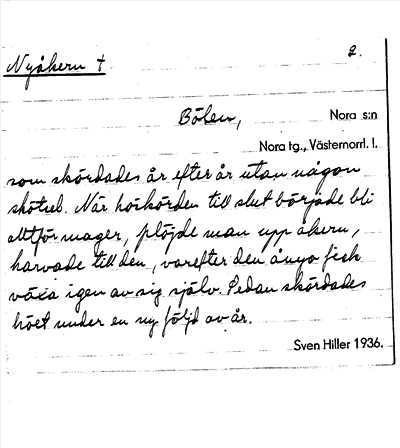 Nyåkern † 2.
Bölen, Nora s:n
Nora tg., Västernorrl. l.
som skördades år efter år utan någon
skötsel. När höskörden till slut började bli
alltför mager, plöjde man upp åkern,
harvade till den, varefter den ånyo fick
växa igen av sig själv. Sedan skördades
höet under en ny följd av år.
Sven Hiller 1936.